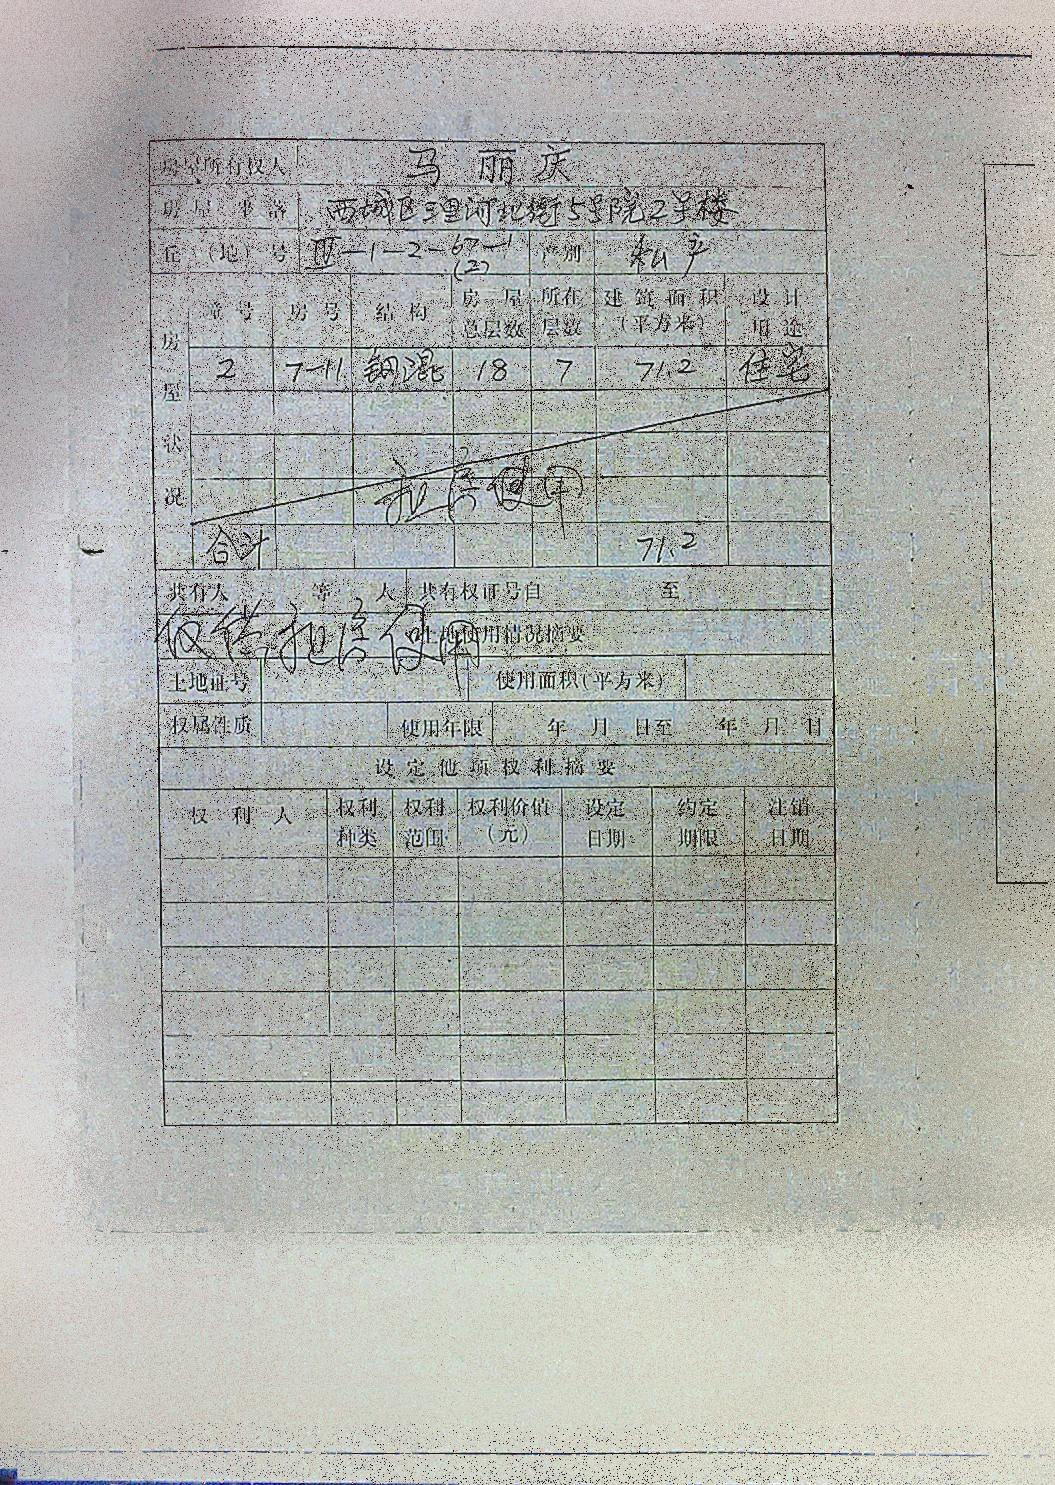 房屋所有权人 马丽庆
房屋坐落 西城区三里河北街5号院2号楼
丘(地)号 Ⅳ-1-2-67-1(2) 产别 私产
房屋状况
幢号 房号 结构 房屋总层数 所在层数 建筑面积(平方米) 设计用途
2 7-11 钢混 18 7 71.2 住宅
租房使用
合计 71.2
共有人 等 人 共有权证号自 至
仅供租房使用
土地使用情况摘要
土地证号 使用面积(平方米)
权属性质 使用年限 年 月 日至 年 月 日
设定他项权利摘要
权利人 权利种类 权利范围 权利价值(元) 设定日期 约定期限 注销日期